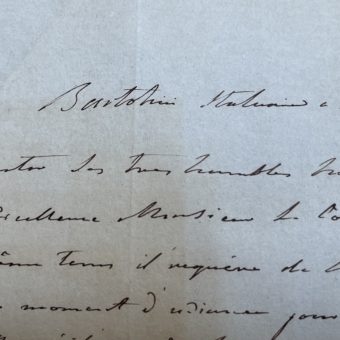 Bartolini Statuaire a
ses tres humbles
Excellence Monsieur le Co
ême tems il requére de l
moment d'udiance pour